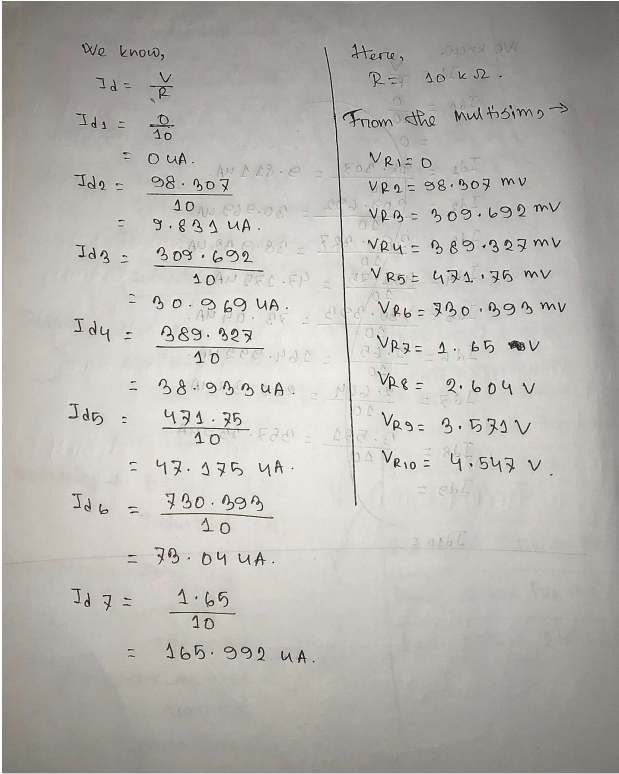 We know,
Id = V
R
Id1 = 0
10
= 0 uA.
Id2 = 98.307
10
= 9.831 uA.
Id3 = 309.692
10
= 30.969 uA.
Id4 = 389.327
10
= 38.933 uA.
Id5 = 471.75
10
= 47.175 uA.
Id6 = 730.393
10
= 73.04 uA.
Id7 = 1.65
10
= 165.992 uA.
Here,
R = 10 kΩ.
From the multisim, →
VR1 = 0
VR2 = 98.307 mv
VR3 = 309.692 mV
VR4 = 389.327 mV
VR5 = 471.75 mV
VR6 = 730.393 mV
VR7 = 1.65 V
VR8 = 2.604 V
VR9 = 3.571 V
VR10 = 4.547 V.